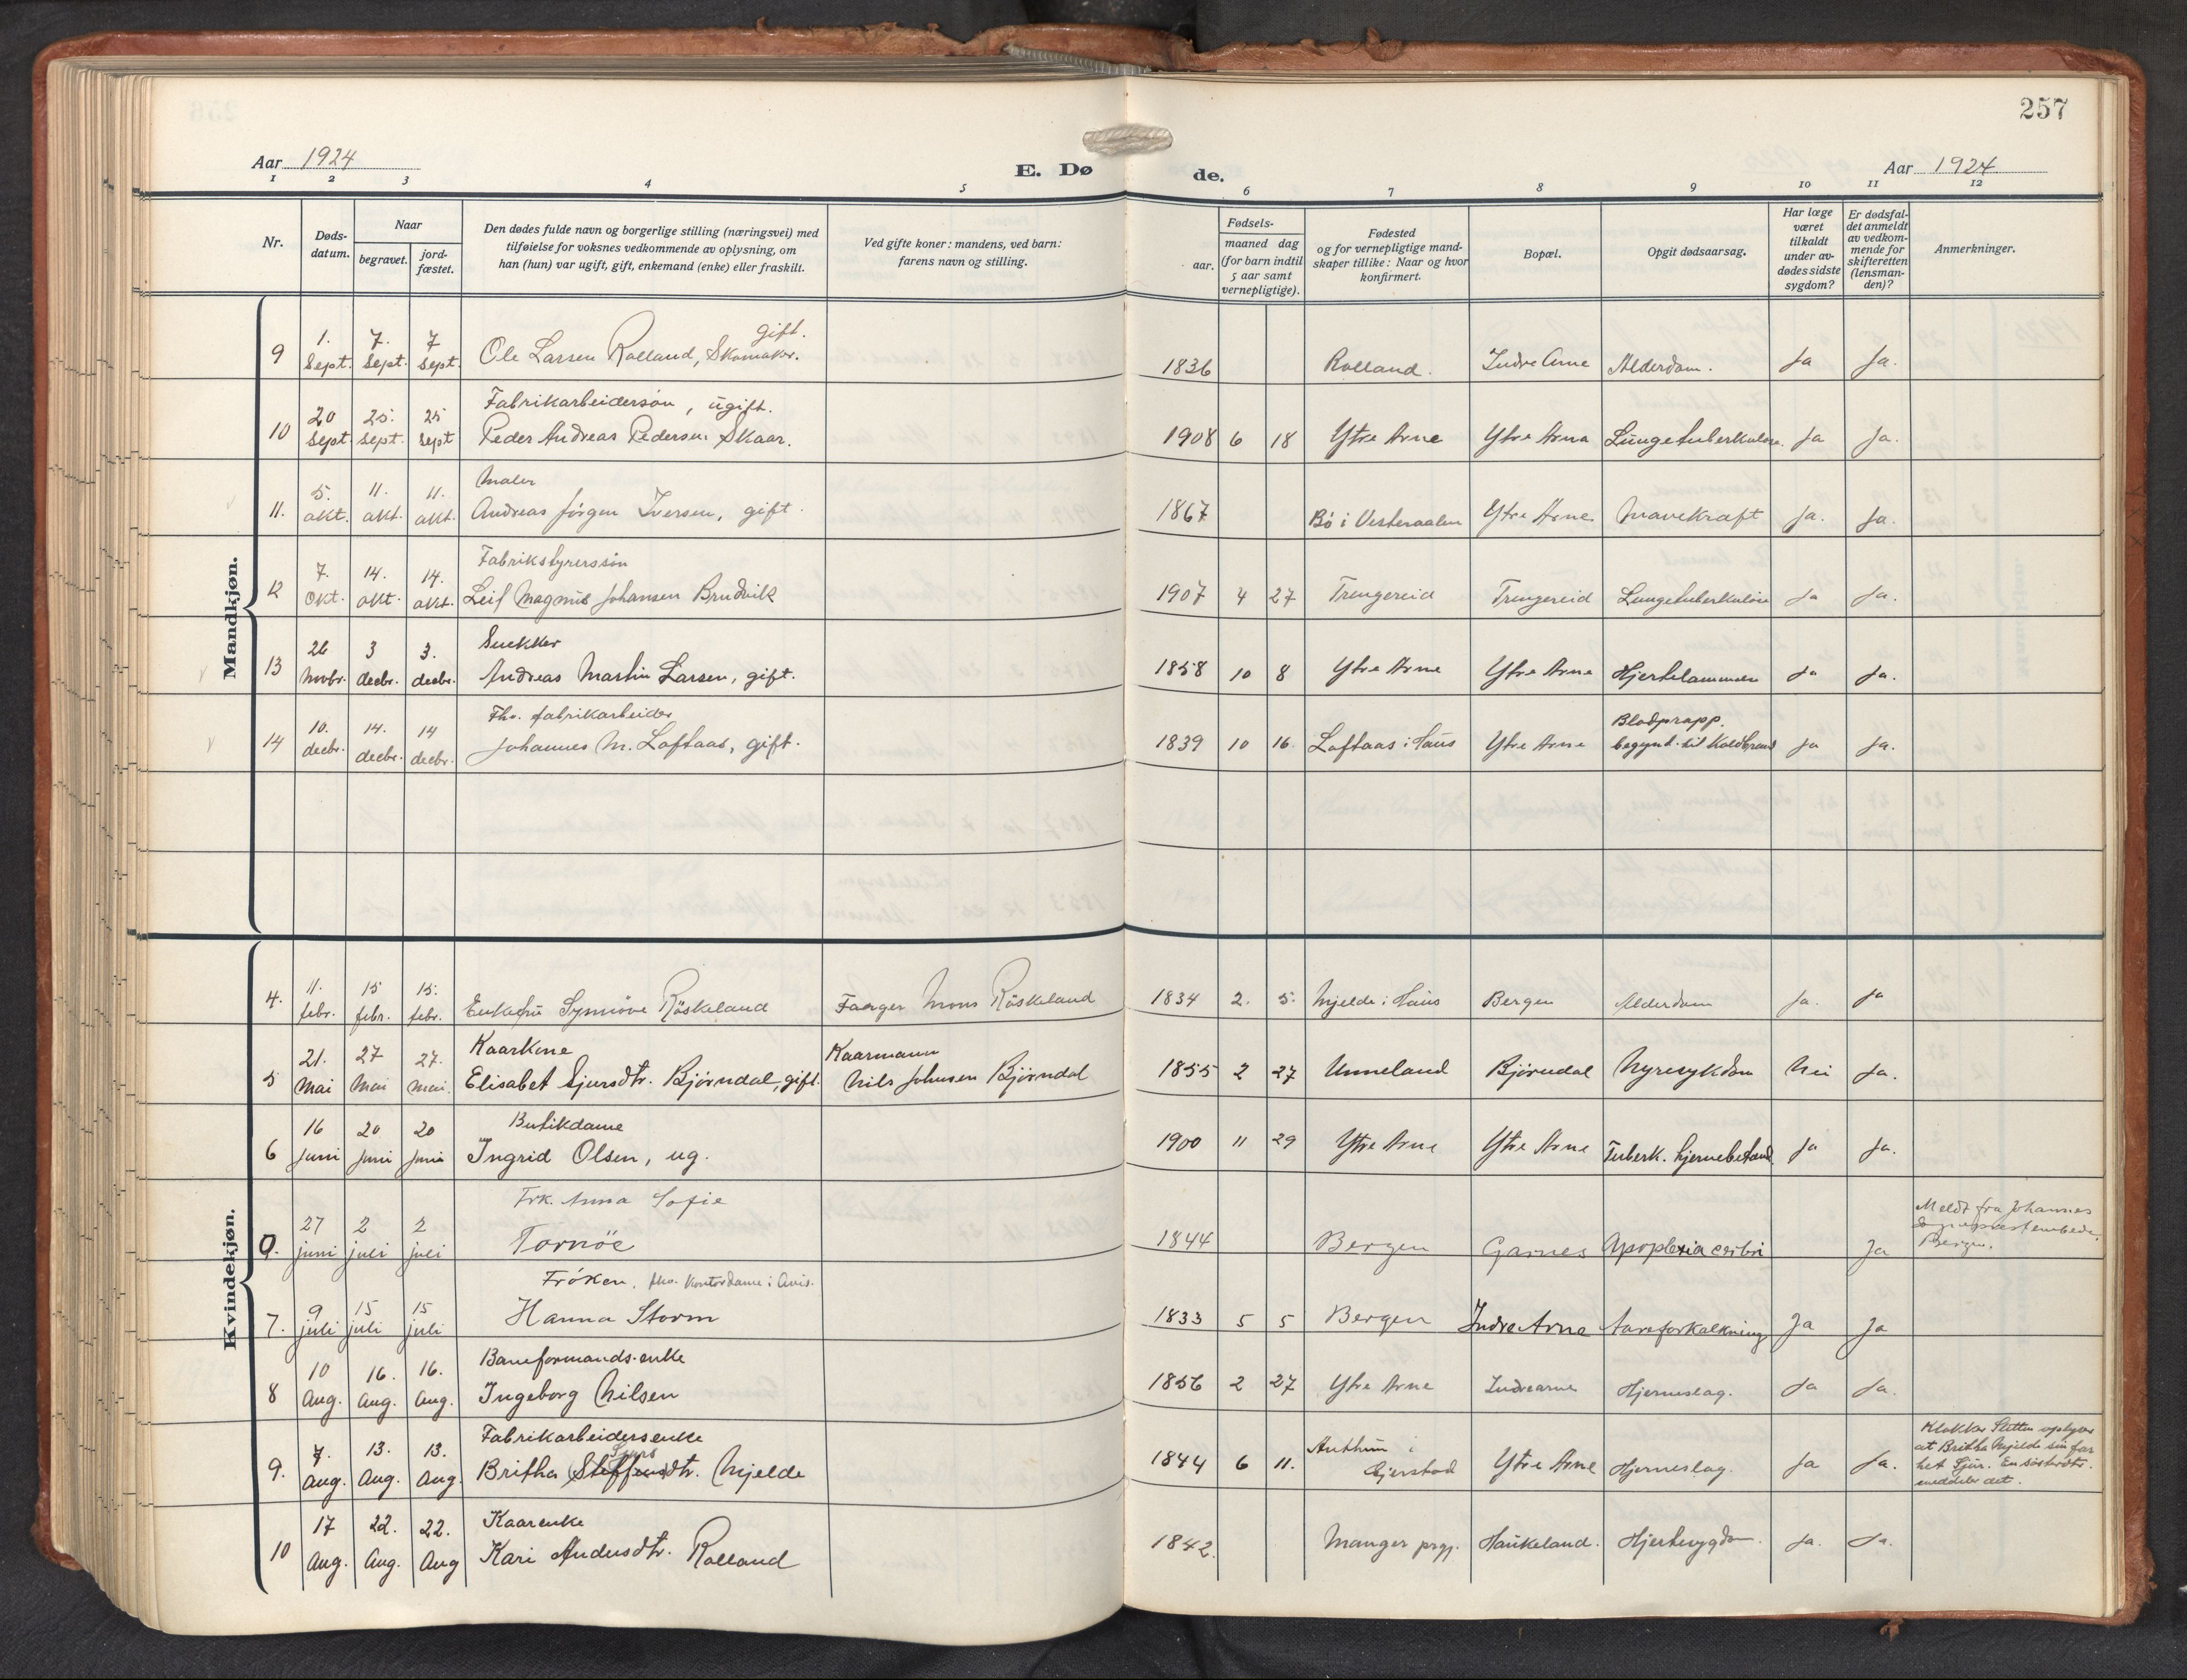 257
Aar 1924
E. Dø
de.
Aar 1924
1 2 3 4 5 6 7 8 9 10 11 12
Nr.
Døds-
datum.
Naar
begravet.
jord-
fæstet.
Den dødes fulde navn og borgerlige stilling (næringsvei) med
tilføielse for voksnes vedkommende av oplysning, om
han (hun) var ugift, gift, enkemand (enke) eller fraskilt.
Ved gifte koner: mandens, ved barn:
farens navn og stilling.
Fødsels-
aar.
maaned dag
(for barn indtil
5 aar samt
vernepligtige).
Fødested
og for vernepligtige mand-
skaper tillike: Naar og hvor
konfirmert.
Bopæl.
Opgit dødsaarsag.
Har læge
været
tilkaldt
under av-
dødes sidste
sygdom?
Er dødsfal-
det anmeldt
av vedkom-
mende for
skifteretten
(lensman-
den)?
Anmerkninger.
Mandkjøn.
gift.
9 1. Sept. 7. Sept. 7 Sept. Ole Larsen Rolland, Skomaker. 1836 Rolland. Indre Arne Alderdom. Ja Ja.
Fabrikarbeidersøn, ugift.
10 20 Sept. 25. Sept. 25 Sept Peder Andreas Pedersen Skaar. 1908 6 18 Ytre Arne Ytre Arna Lungetuberkulose. Ja Ja.
Maler
11. 5. okt. 11. okt. 11. okt. Andreas Jørgen Iversen, gift. 1867 Bö i Vesteraalen Ytre Arne Mavekræft Ja. Ja.
Fabrikstyrerssön
12 7. Okt. 14. okt. 14. okt. Leif Magnus Johansen Brudvik 1907 4 27 Trengereid Trengereid Lungetuberkulose Ja Ja.
Snekker
13 26 novbr. 3 decbr. 3. decbr. Andreas Martin Larsen, gift. 1858 10 8 Ytre Arne Ytre Arne Hjertelammelse Ja Ja.
Fhv. fabrikarbeider
14 10. decbr. 14. decbr. 14 decbr. Johannes M. Loftaas, gift. 1839 10 16. Loftaas i Haus Ytre Arne Blodprapp. begynt. til Koldbrand Ja Ja.
Kvindekjøn.
4. 11. febr. 15 febr. 15. febr. Enkefru Synnöve Röskeland Farger Mons Röskeland 1834 2. 5. Mjelde i Haus Bergen Alderdom Ja. Ja
Kaarkone Kaarmann
5 21. Mai 27 Mai 27. Mai. Elisabet Sjursdtr. Bjørndal, gift. Nils Johnsen Bjørndal 1855 2 27 Unneland Bjørndal Nyresykdom Nei Ja.
Butikdame
6 16 Juni 20 Juni 20 Juni Ingrid Olsen, ug. 1900 11 29 Ytre Arne Ytre Arne Tuberk. hjernebetænd. Ja Ja.
Frk. Anna Sofie
0. 27 juni 2 juli 2 juli Tornöe 1844 Bergen Garnes Apoplexia cerbri Ja
Meldt fra Johannes
Sogneprestembede,
Bergen.
Fröken. fhv. Kontordame i Avis.
7. 9 juli 15 juli 15 juli Hanna Storm 1833 5 5 Bergen Indre Arne Aareforkalkning Ja Ja
Baneformands-enke
8 10 Aug. 16. Aug. 16. Aug. Ingeborg Nilsen 1856 2 27 Ytre Arne Indrearne Hjerneslag. Ja Ja.
Fabrikarbeidersenke
Sjurs
9. 7. Aug. 13. Aug. 13. Aug Britha Steffensdtr. Mjelde 1844 6 11. i Gjerstad Ytre Arne Hjerneslag. Ja Ja.
Klokker Sletten oplyser
at Britha Mjelde sin far
het Sjur. En søsterdtr.
meddeler det.
Kaarenke
10 17 Aug. 22. Aug. 22. Aug Kari Andersdtr. Rolland 1842. Manger prgj. Haukeland. Hjertesygdom. Ja. Ja.